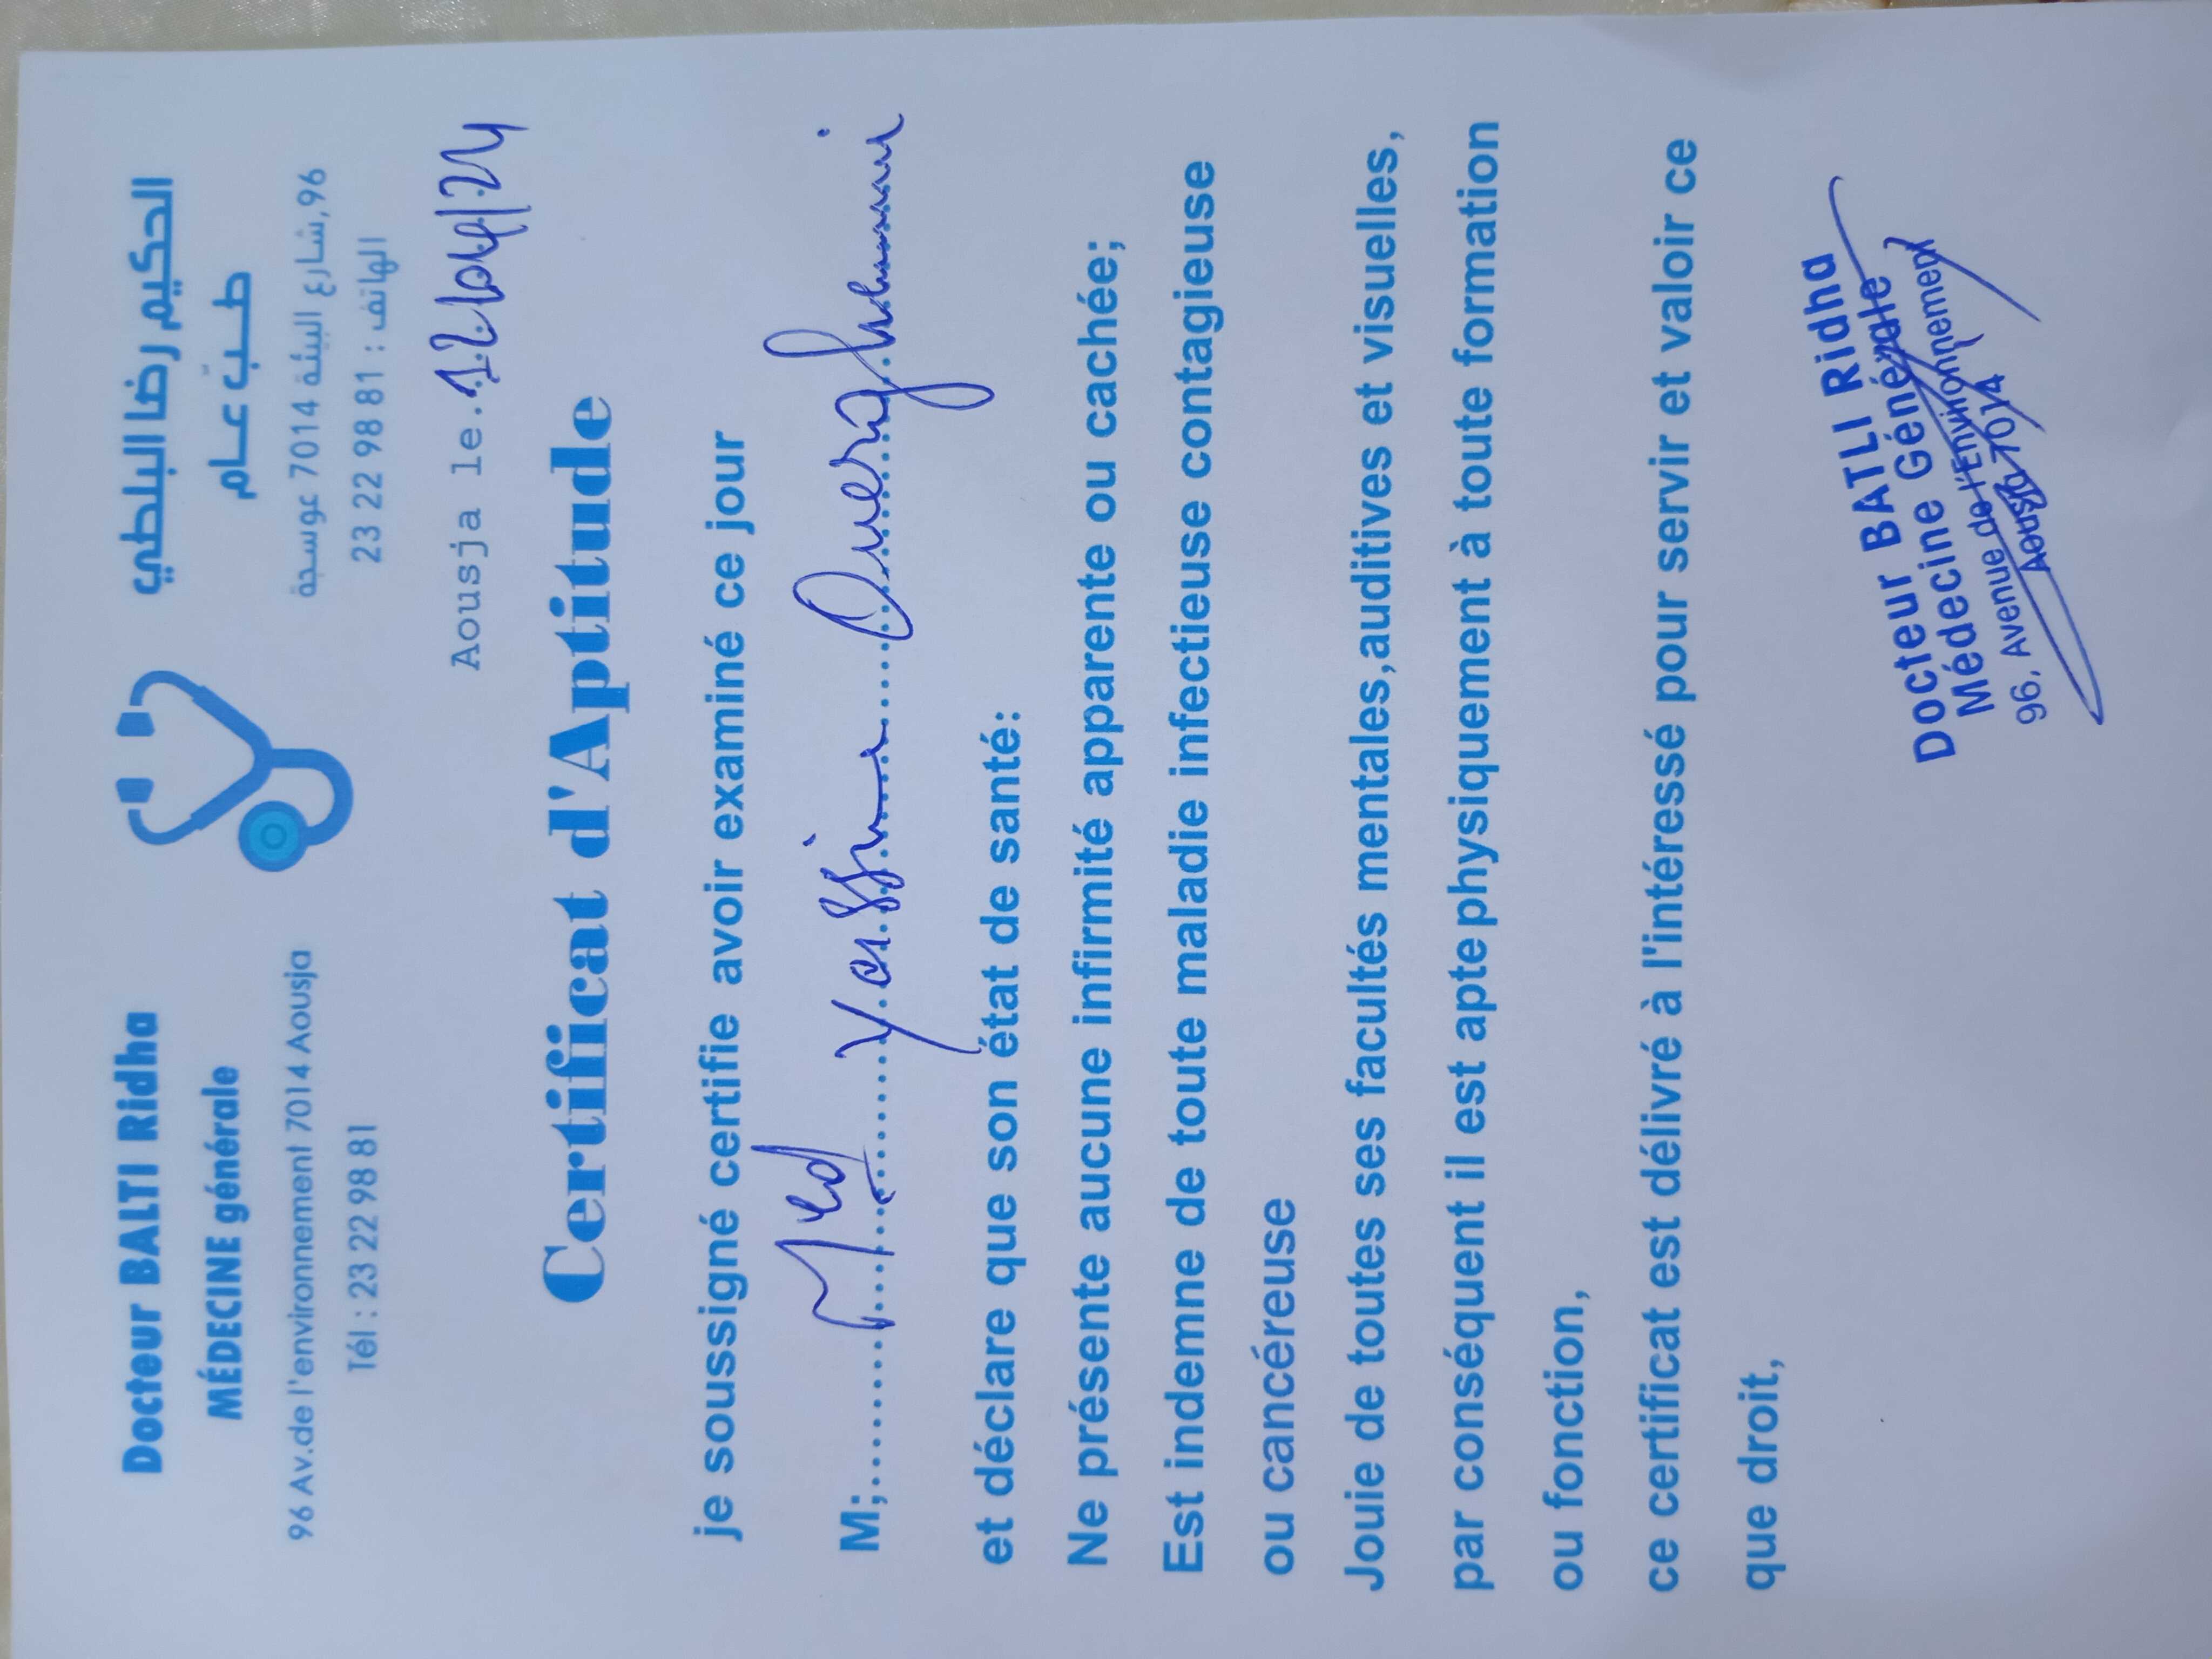 Docteur BALTI Ridha
MÉDECINE générale
96 Av.de l'environnement 7014 Aousja
Tél : 23 22 98 81
الحكيم رضا البلطي
طب عام
96,شارع البيئة 7014 عوسجة
الهاتف : 23 22 98 81
Aousja le.12/09/24
Certificat d'Aptitude
je soussigné certifie avoir examiné ce jour
M;..........Med Yassine Oueraghumani
et déclare que son état de santé:
Ne présente aucune infirmité apparente ou cachée;
Est indemne de toute maladie infectieuse contagieuse
ou cancéreuse
Jouie de toutes ses facultés mentales,auditives et visuelles,
par conséquent il est apte physiquement à toute formation
ou fonction,
ce certificat est délivré à l'intéressé pour servir et valoir ce
que droit,
Docteur BATLI Ridha
Médecine Générale
96, Avenue de l'Environnement
Aousja 7014